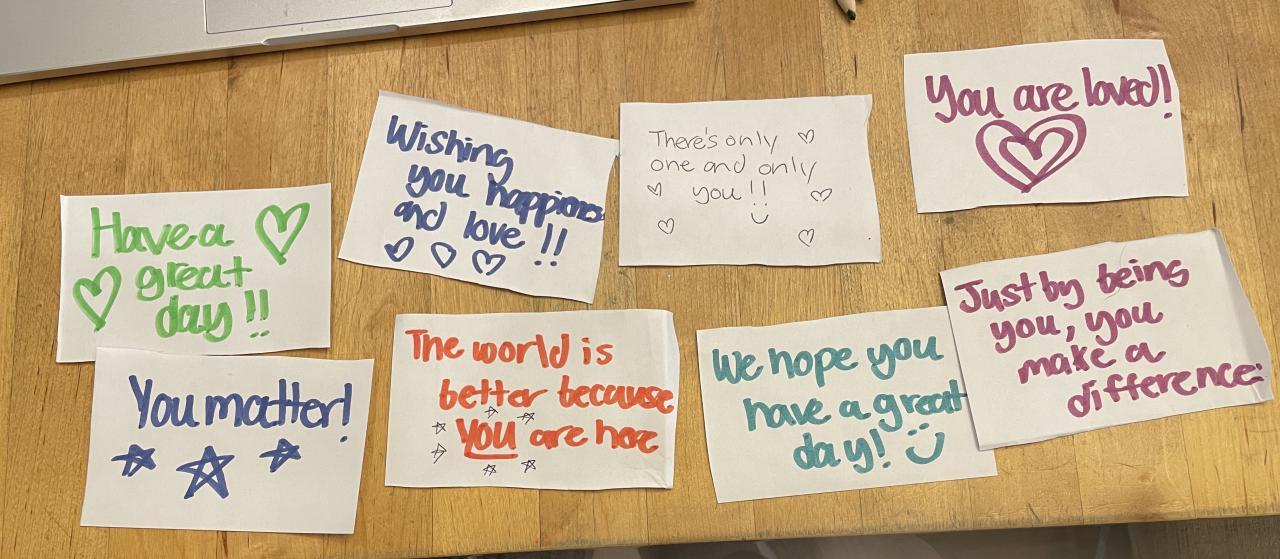 Have a
great
day!!
Wishing
you happiness
and love!!
There's only
one and only
you!!
You are loved!!
You matter!
The world is
better because
you are here
We hope you
have a great
day!
Just by being
you, you
make a
difference: